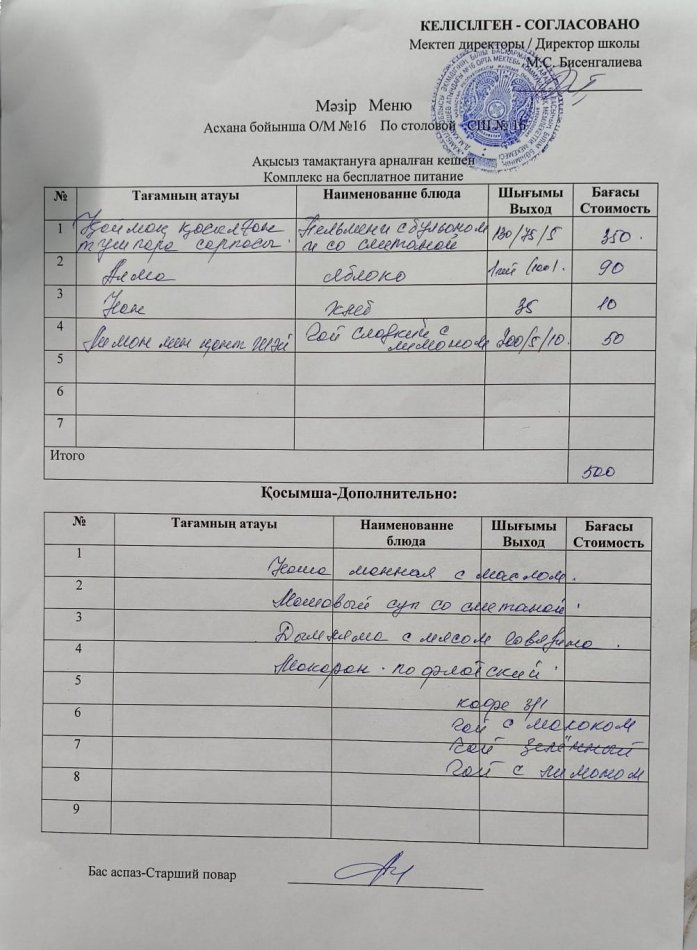 КЕЛІСІЛГЕН - СОГЛАСОВАНО
Мектеп директоры / Директор школы
М.С. Бисенгалиева
Мәзір Меню
Асхана бойынша О/М №16 По столовой СШ № 16
Ақысыз тамақтануға арналған кешен
Комплекс на бесплатное питание
№ Тағамның атауы Наименование блюда Шығымы Выход Бағасы Стоимость
1 Қаймақ қосылған тұшпара сорпасы. Пельмени с бульоном и со сметаной 130/75/5 350.
2 Алма яблоко 90
3 Нан хлеб 35 10
4 Лимон мен қант шәй Чай сладкий с лимоном 200/5/10. 50
5
6
7
Итого 500
Қосымша-Дополнительно:
№ Тағамның атауы Наименование блюда Шығымы Выход Бағасы Стоимость
1 Каша манная с маслом.
2 Машовый суп со сметаной.
3 Дымляма с мясом говядина.
4 Макарон. по флотский.
5
6 кофе 3/1
чай с молоком
7 чай зелённый
8 чай с лимоном
9
Бас аспаз-Старший повар